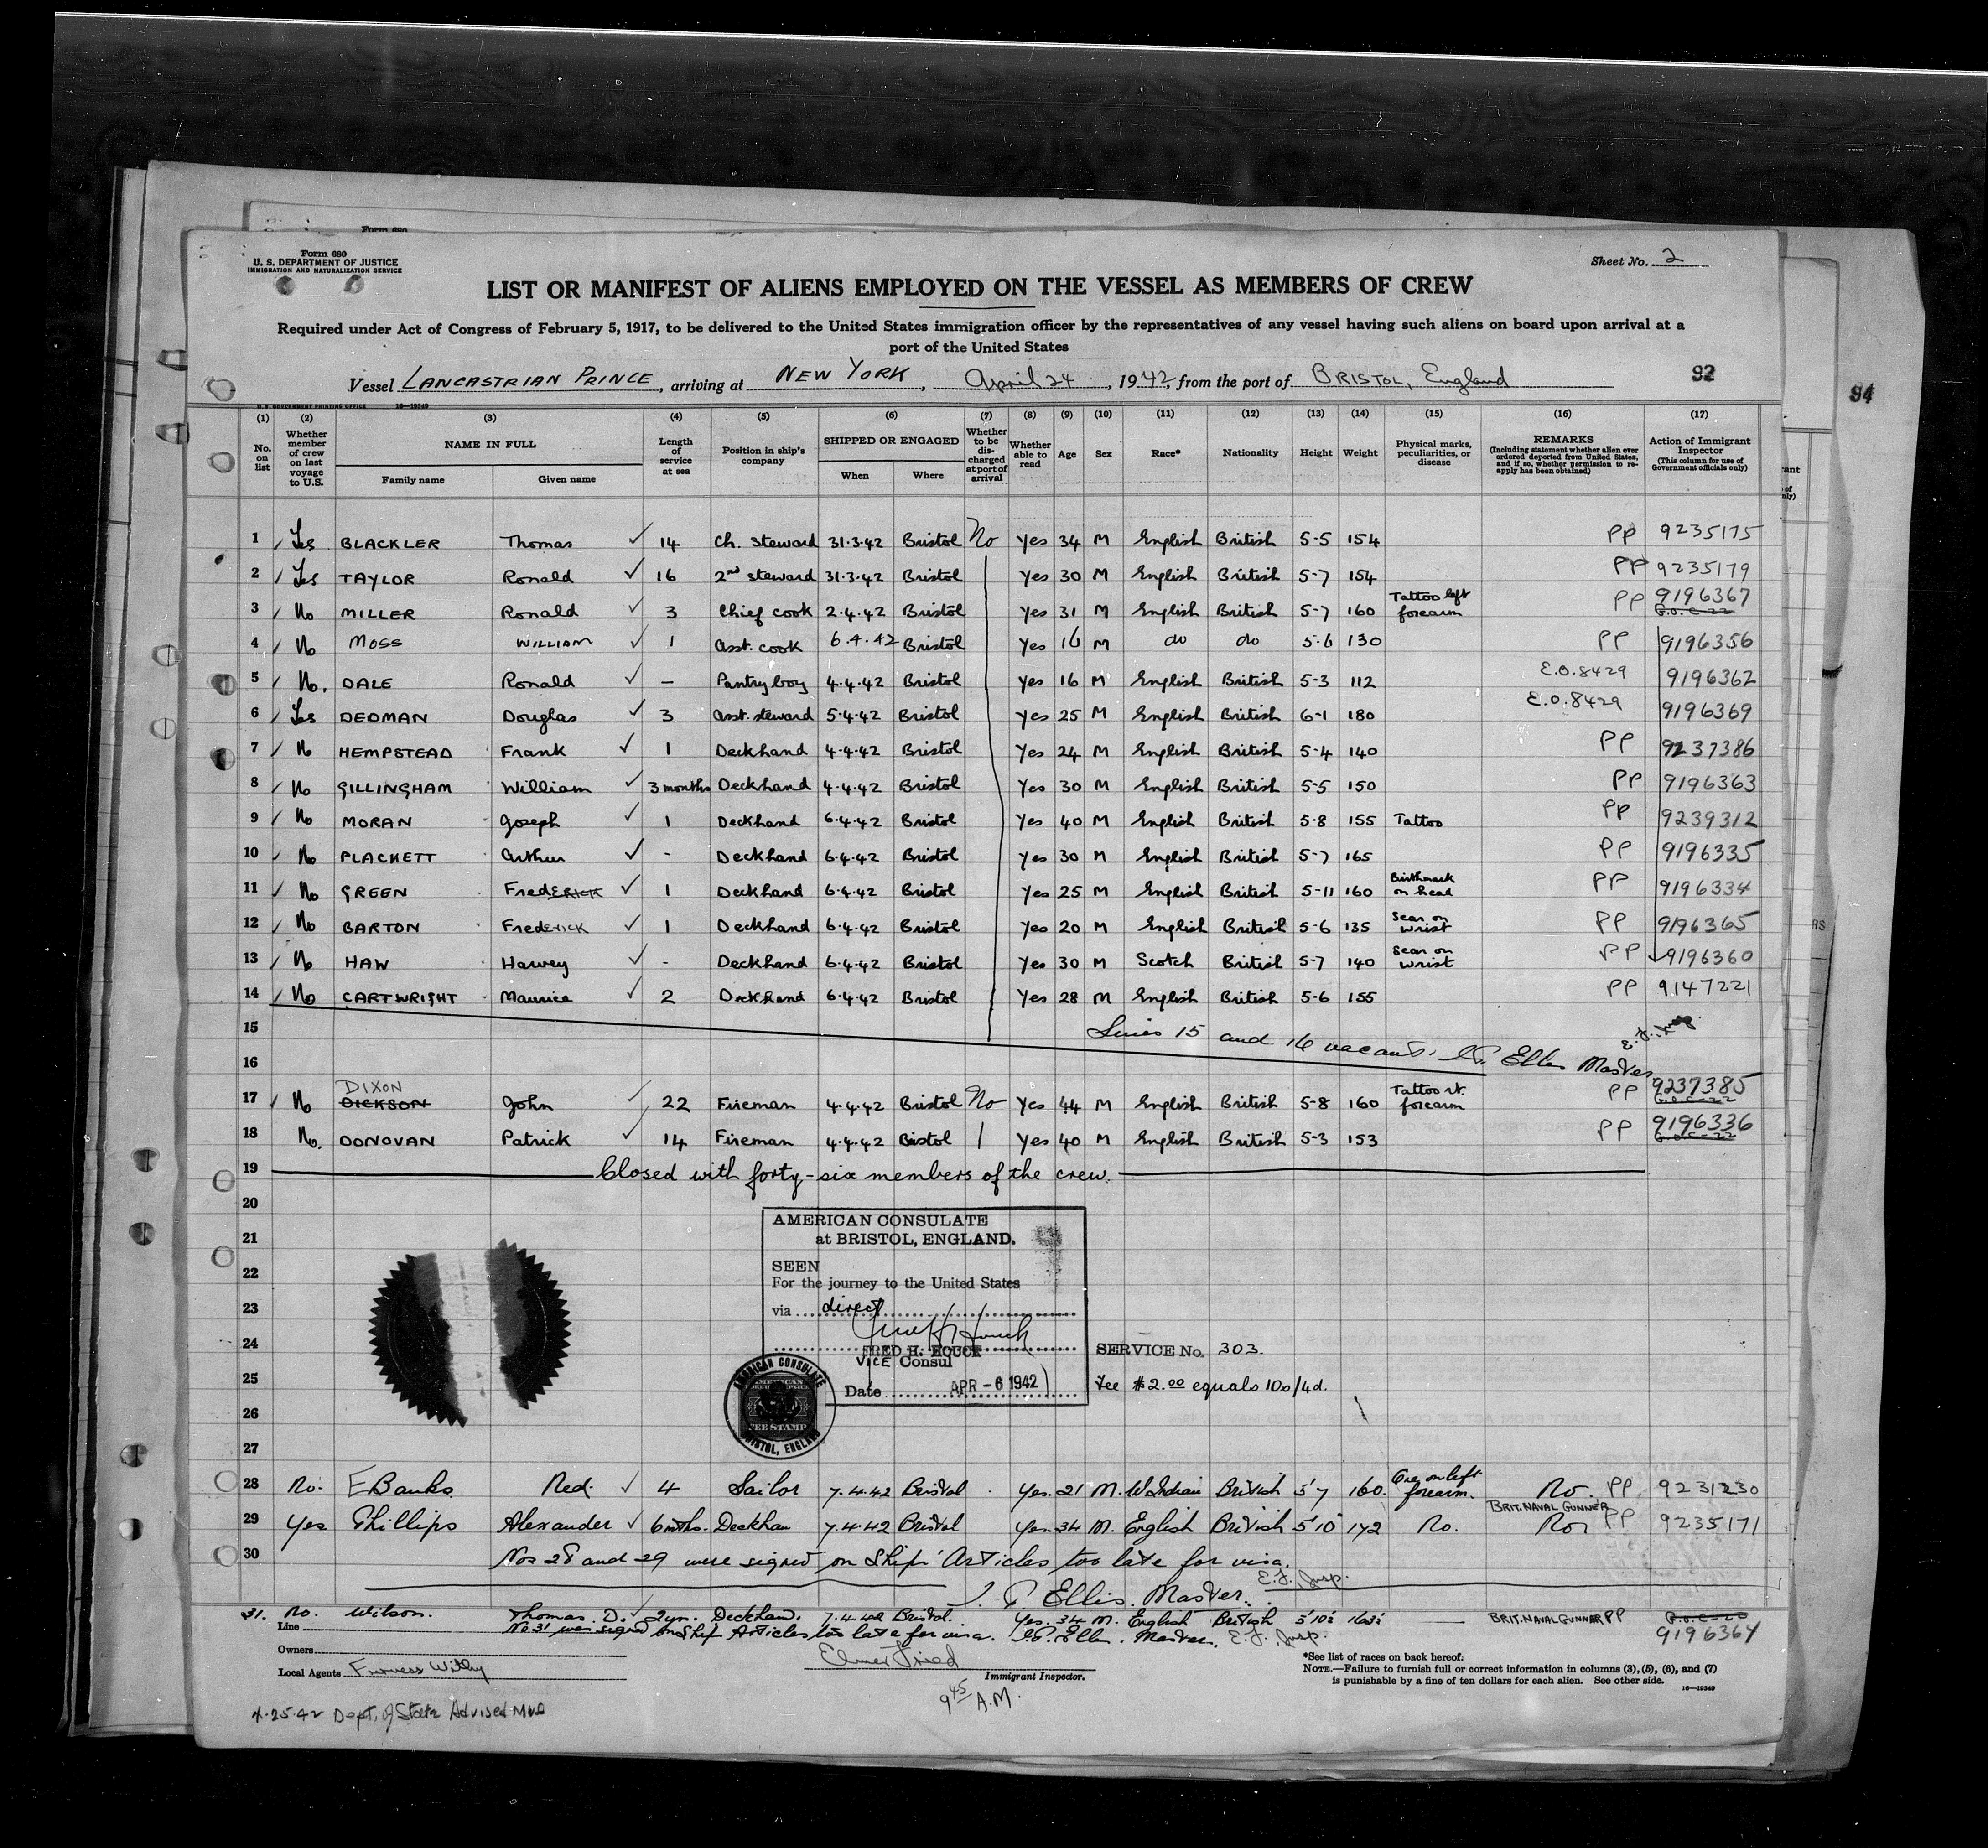 Form 680
U. S. DEPARTMENT OF JUSTICE
IMMIGRATION AND NATURALIZATION SERVICE
Sheet No. 2
LIST OR MANIFEST OF ALIENS EMPLOYED ON THE VESSEL AS MEMBERS OF CREW
Required under Act of Congress of February 5, 1917, to be delivered to the United States immigration officer by the representatives of any vessel having such aliens on board upon arrival at a
port of the United States
Vessel LANCASTRIAN PRINCE, arriving at NEW YORK, April 24, 1942, from the port of BRISTOL, England 92
94
(1) No. on list
(2) Whether member of crew on last voyage to U.S.
(3) NAME IN FULL Family name Given name
(4) Length of service at sea
(5) Position in ship's company
(6) SHIPPED OR ENGAGED When Where
(7) Whether to be discharged at port of arrival
(8) Whether able to read
(9) Age
(10) Sex
(11) Race*
(12) Nationality
(13) Height
(14) Weight
(15) Physical marks, peculiarities, or disease
(16) REMARKS (Including statement whether alien ever ordered deported from United States, and if so, whether permission to reapply has been obtained)
(17) Action of Immigrant Inspector (This column for use of Government officials only)
1 Yes BLACKLER Thomas 14 Ch. steward 31.3.42 Bristol No Yes 34 M English British 5-5 154 PP 9235175
2 Yes TAYLOR Ronald 16 2nd steward 31.3.42 Bristol Yes 30 M English British 5-7 154 PP 9235179
3 No MILLER Ronald 3 Chief cook 2.4.42 Bristol Yes 31 M English British 5-7 160 Tattoo left forearm PP 9196367
4 No MOSS WILLIAM 1 Asst. cook 6.4.42 Bristol Yes 16 M do do 5-6 130 PP 9196356
5 No. DALE Ronald - Pantry boy 4.4.42 Bristol Yes 16 M English British 5-3 112 E.O.8429 9196362
6 Yes DEDMAN Douglas 3 Asst. steward 5.4.42 Bristol Yes 25 M English British 6-1 180 E.O.8429 9196369
7 No HEMPSTEAD Frank 1 Deckhand 4.4.42 Bristol Yes 24 M English British 5-4 140 PP 9237386
8 No GILLINGHAM William 3 months Deckhand 4.4.42 Bristol Yes 30 M English British 5-5 150 PP 9196363
9 No MORAN Joseph 1 Deckhand 6.4.42 Bristol Yes 40 M English British 5-8 155 Tattoo PP 9239312
10 No PLACKETT Arthur - Deckhand 6.4.42 Bristol Yes 30 M English British 5-7 165 PP 9196335
11 No GREEN FredERICK 1 Deckhand 6.4.42 Bristol Yes 25 M English British 5-11 160 Birthmark on head PP 9196334
12 No BARTON Frederick 1 Deckhand 6.4.42 Bristol Yes 20 M English British 5-6 135 Scar on wrist PP 9196365
13 No HAW Harvey - Deckhand 6.4.42 Bristol Yes 30 M Scotch British 5-7 140 Scar on wrist PP 9196360
14 No CARTWRIGHT Maurice 2 Deckhand 6.4.42 Bristol Yes 28 M English British 5-6 155 PP 9147221
15 Lines 15 and 16 vacant. Ellis Master E.F. Insp.
16
17 No DIXON DICKSON John 22 Fireman 4.4.42 Bristol No Yes 44 M English British 5-8 160 Tattoo rt. forearm PP 9237385
18 No. DONOVAN Patrick 14 Fireman 4.4.42 Bristol Yes 40 M English British 5-3 153 PP 9196336
19 Closed with forty-six members of the crew.
20
21
22
23
24
25
26
27
AMERICAN CONSULATE
at BRISTOL, ENGLAND.
SEEN
For the journey to the United States
via direct
FRED H. HOUCK
VICE Consul
Date APR - 6 1942
SERVICE No. 303.
Fee $2.00 equals 10s/4d.
AMERICAN CONSULATE
FEE STAMP
BRISTOL, ENGLAND
28 No. EBanks Red. 4 Sailor 7.4.42 Bristol Yes. 21 M. W.Indian British 5'7 160 on left forearm. No. PP 9231230
29 Yes Phillips Alexander 6 mths. Deckhan 7.4.42 Bristol Yes. 34 M. English British 5'10" 172 No. BRIT. NAVAL GUNNER No. PP 9235171
30 Nos 28 and 29 were signed on Ship' Articles too late for visa.
Ellis. Master. E.F. Insp.
31. No. Wilson. Thomas. D. 2yr. Deckhan. 7.4.42 Bristol. Yes. 34 M. English British 5'10½ 163½ BRIT. NAVAL GUNNER PP 9196364
Line
No 31 was signed on Ship Articles too late for visa. Ellis. Master. E.F. Insp.
Owners
Elmer Fried
Immigrant Inspector.
Local Agents Furness Withy
9 45 A.M.
*See list of races on back hereof.
NOTE.—Failure to furnish full or correct information in columns (3), (5), (6), and (7)
is punishable by a fine of ten dollars for each alien. See other side.
16—19349
4-25-42 Dept. of State Advised